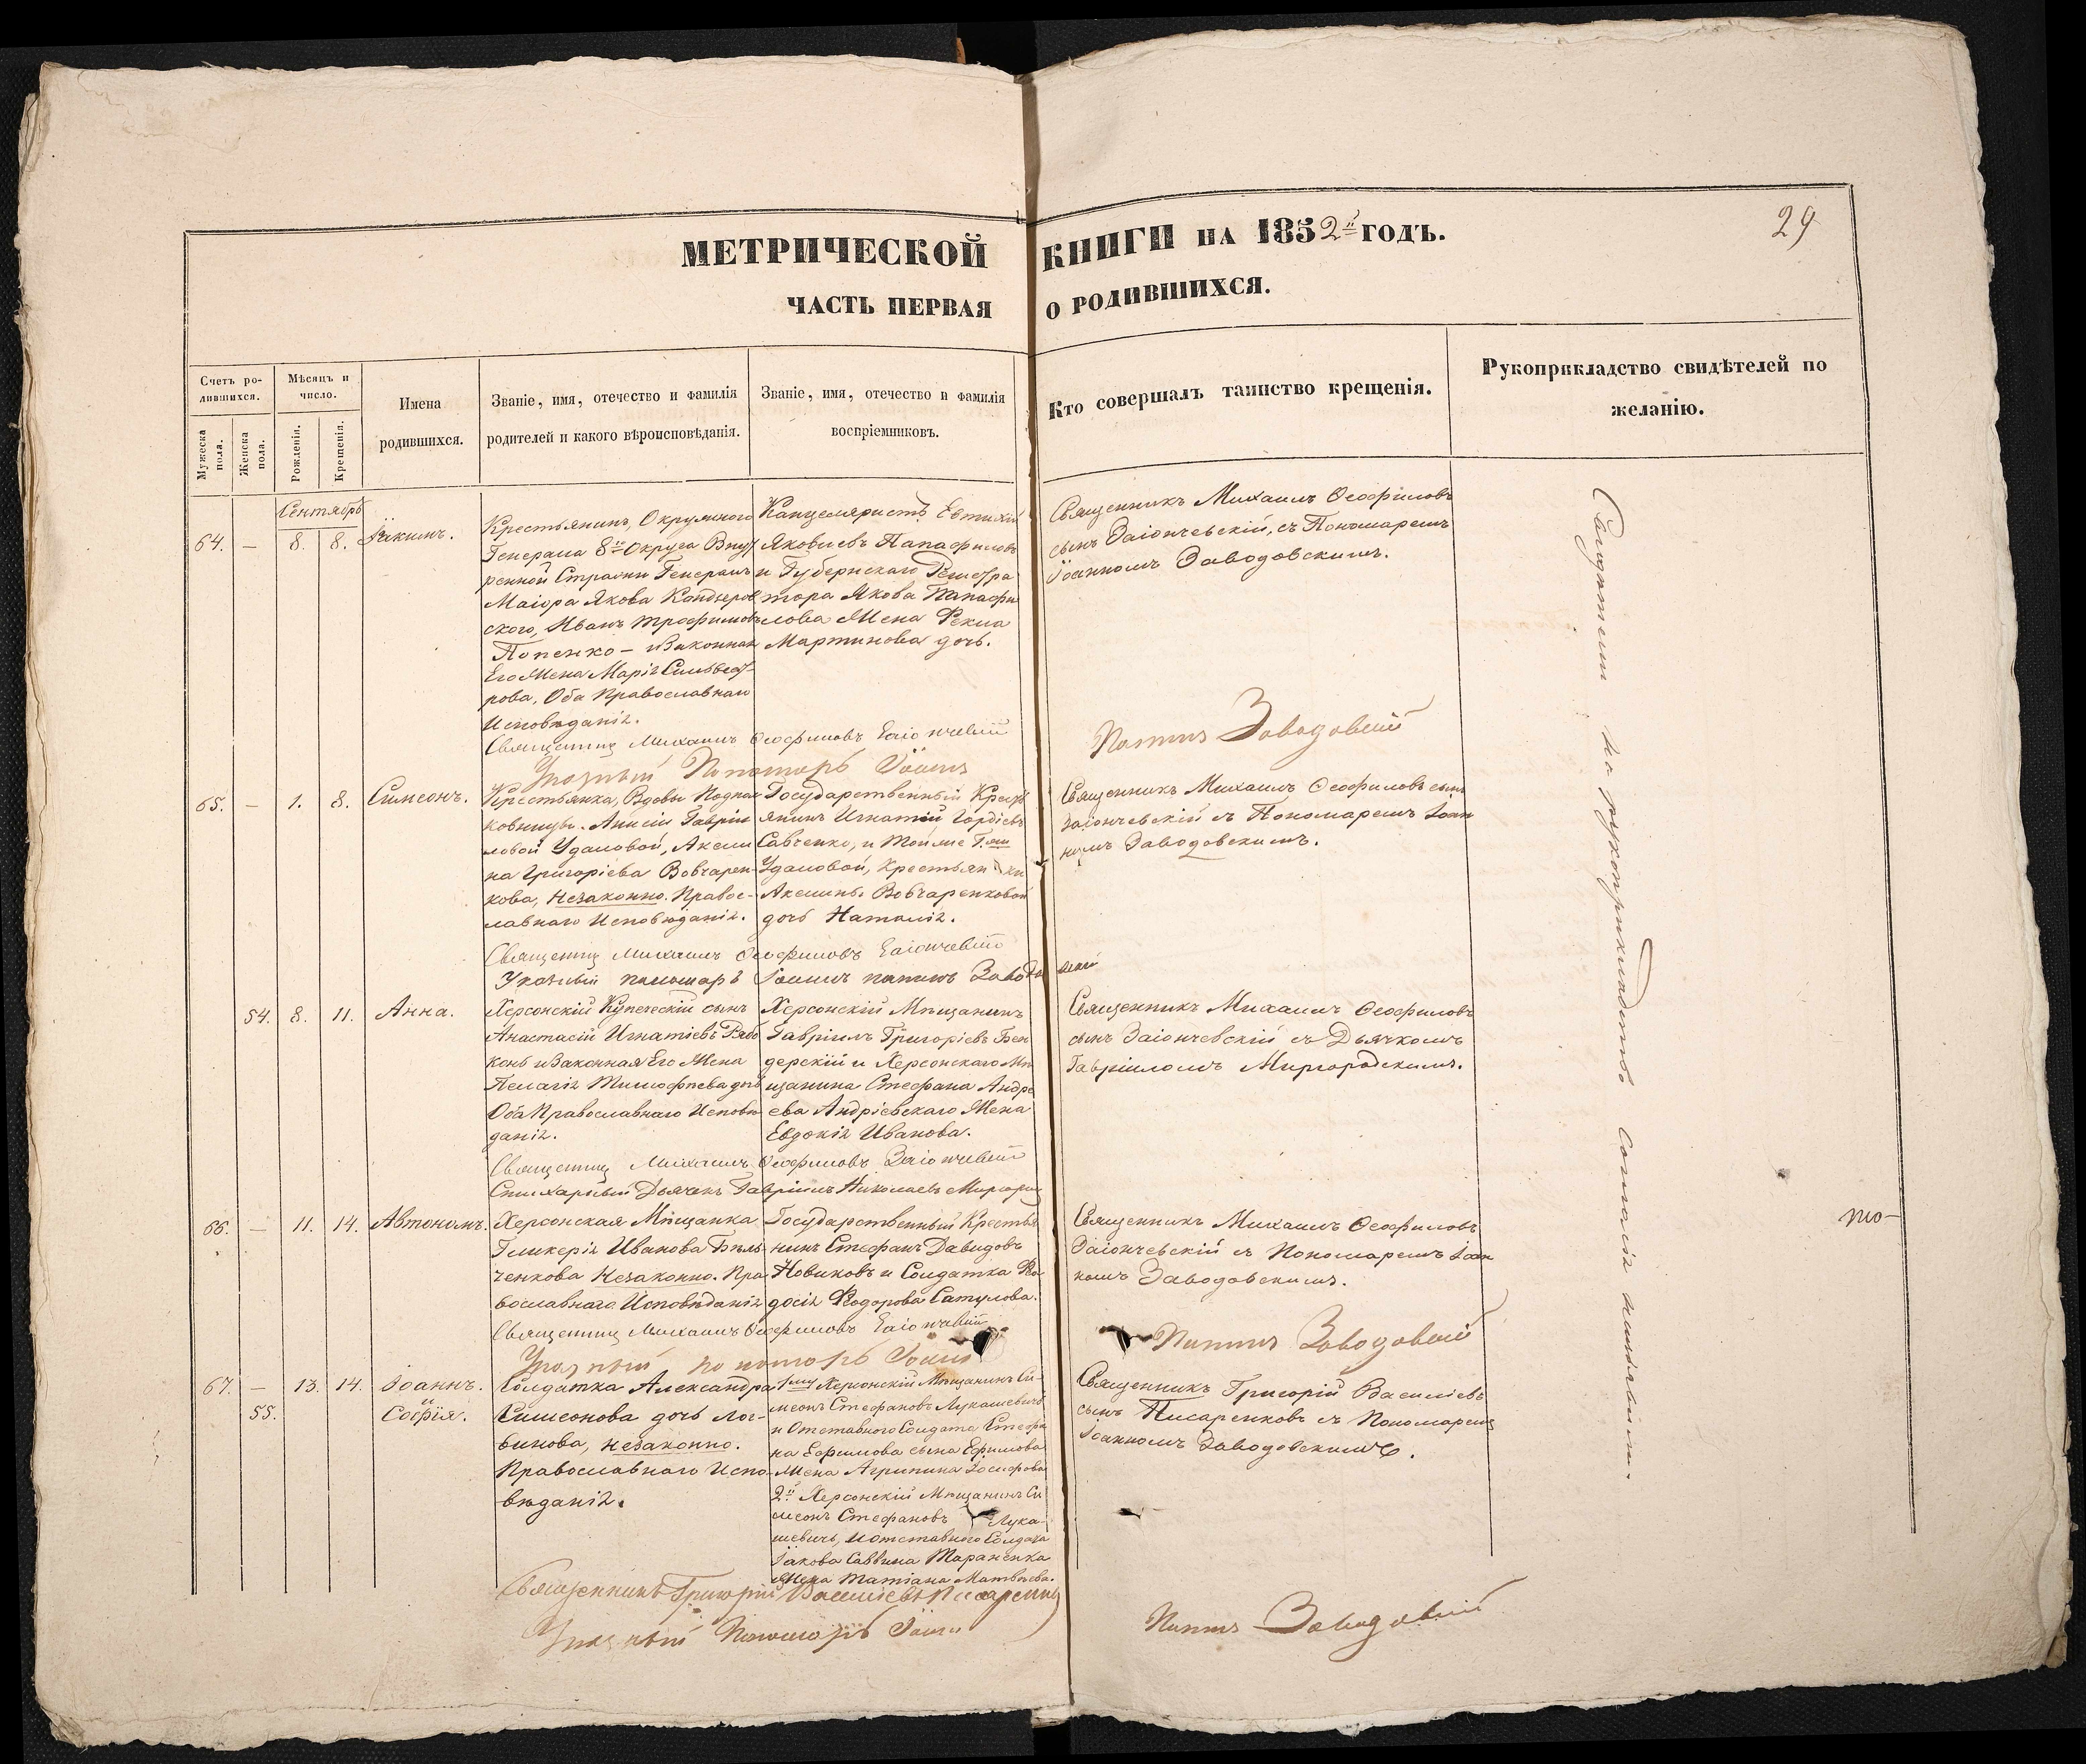 29
МЕТРИЧЕСКОЙ КНИГИ НА 1852й ГОДЪ.
ЧАСТЬ ПЕРВАЯ О РОДИВШИХСЯ.
Счетъ ро-
дившихся.
Мужеска пола.
Женска пола.
Мѣсяцъ и
число.
Рожденія.
Крещенія.
Имена
родившихся.
Званіе, имя, отечество и фамилія
родителей и какого вѣроисповѣданія.
Званіе, имя, отечество и фамилія
воспріемниковъ.
Кто совершалъ таинство крещенія.
Рукоприкладство свидѣтелей по
желанію.
Сентябрь
64. — 8. 8. Іакимъ.
Крестьянинъ, Окружного
Генерала 8го Округа Внут
ренной Стражи Генералъ
Маіора Якова
ского, Иванъ Трофимовъ
Попенко — и Законная
Его Жена Марія Сильвест-
рова, Оба Православнаго
Исповѣданія.
Канцеляристъ Евтихій
Яковлевъ Папафиловъ
и Губернскаго Регистра
тора Якова Папафи
лова Жена Фекла
Мартинова дочь.
Священникъ Михаилъ Ѳеофиловъ
сынъ Заіончевскій, съ Пономаремъ
Іоанномъ Заводовскимъ.
Священникъ Михаилъ Ѳеофиловъ Заіончевскій
Указный Пономарь Іоаннъ
Заводовскій
65. — 1. 8. Симеонъ.
Крестьянка, Вдовы Подпол
ковницы Аннисіи Гаврии
ловой Удаловой, Аксени
на Григоріева Вовчарен-
кова, Незаконно. Правос-
лавнаго Исповѣданія.
Государственный Кресть
янинъ Игнатій Гордіевъ
Савченко, и Тойже Гжи
Удаловой, Крестьянки
Аксиньи Вовчаренковой
дочь Наталія.
Священникъ Михаилъ Ѳеофиловъ сынъ
Заіончевскій съ Пономаремъ Іоан
номъ Заводовскимъ.
Священникъ Михаилъ Ѳеофиловъ Заіончевскій
Указный пономарь Іоаннъ Заводовскій
54. 8. 11. Анна.
Херсонскій Купеческій сынъ
Анастасій Игнатіевъ Рябо
конь и Законная Его Жена
Пелагія Тимофѣева дочь
Оба Православнаго Исповѣ
данія.
Херсонскій Мѣщанинъ
Гавріилъ Григоріевъ Бен
дерскій и Херсонскаго Мѣ
щанина Стефана Андре
ева Андріевскаго Жена
Евдокія Иванова.
Священникъ Михаилъ Ѳеофиловъ
сынъ Заіончевскій съ Дьячкомъ
Гавріиломъ Миргородскимъ.
Священникъ Михаилъ Ѳеофиловъ Заіончевскій
Стихарный Дьячекъ Гавріилъ Николаевъ
66. — 11. 14. Автономъ.
Херсонская Мѣщанка
Гликерія Иванова Бѣль-
ченкова Незаконно. Пра
вославнаго Исповѣданія
Государственный Крестья
нинъ Стефанъ Давидовъ
Новиковъ и Солдатка Ѳео
досія Ѳеодорова Сатулова.
Священникъ Михаилъ Ѳеофиловъ
Заіончевскій съ Пономаремъ Іоан
номъ Заводовскимъ.
Священникъ Михаилъ Ѳеофиловъ Заіончевскій
Указный пономарь Іоаннъ
Заводовскій
67. — 13. 14. Іоаннъ.
55. и Софія.
Солдатка Александра
Симеонова дочь Лог-
винова, незаконно.
Православнаго Испо-
вѣданія.
Херсонскій Мѣщанинъ Си-
меонъ Стефановъ Лукашевичъ
и Отставного Солдата Стефа
на Ефимова сына Ефимова
Жена Агрипина Іосифова
2й Херсонскій Мѣщанинъ Си
меонъ Стефановъ Лука-
шевичъ, и отставного Солдата
Іакова Саввина Тараненка
Жена Татіана Матвѣева.
Священникъ Григорій Василіевъ
сынъ Писаренковъ съ Пономаремъ
Іоанномъ Заводовскимъ.
Священникъ Григорій Василіевъ Писаренковъ
Указный Пономарь Іоаннъ
Заводовскій
Свидетели на рукоприкладство согласія неизъявили.